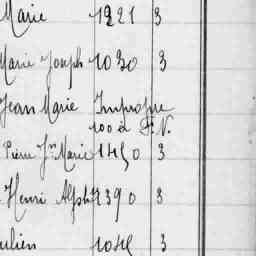 Marie 1221 3
Marie Joseph 1030 3
Jean Marie Impropre
100 à F. V.
Pierre Jn Marie 1450 3
Henri Alph 2390 3
ulien 1045 3